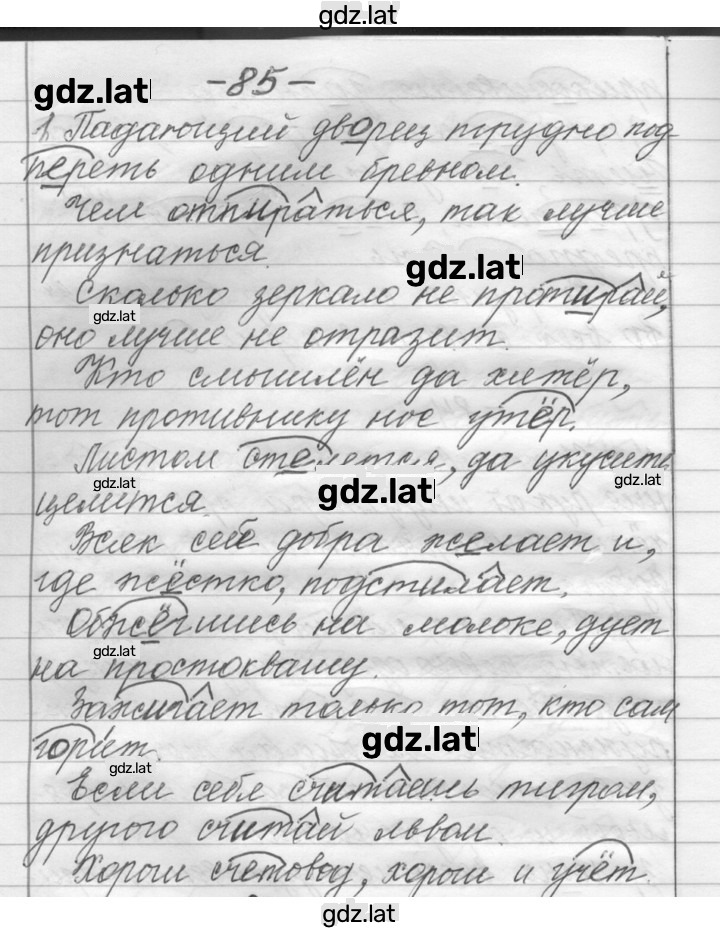 gdz.lat
gdz.lat
-85-
1. Падающий дворец трудно под-
переть одним бревном.
Чем отпираться, так лучше
признаться.
gdz.lat
Сколько зеркало не протирай,
gdz.lat
оно лучше не отразит.
Кто смышлён да хитёр,
тот противнику нос утёр.
Листом стелется, да укусить
gdz.lat
gdz.lat
gdz.lat
целится.
Всяк себе добра желает и,
где жёстко, подстилает.
Обжёгшись на молоке, дует
gdz.lat
на простоквашу.
Зажигает только тот, кто сам
gdz.lat
горит.
gdz.lat
Если себя считаешь тигром,
другого считай львом.
Хорош счетовод, хорош и учёт.
gdz.lat